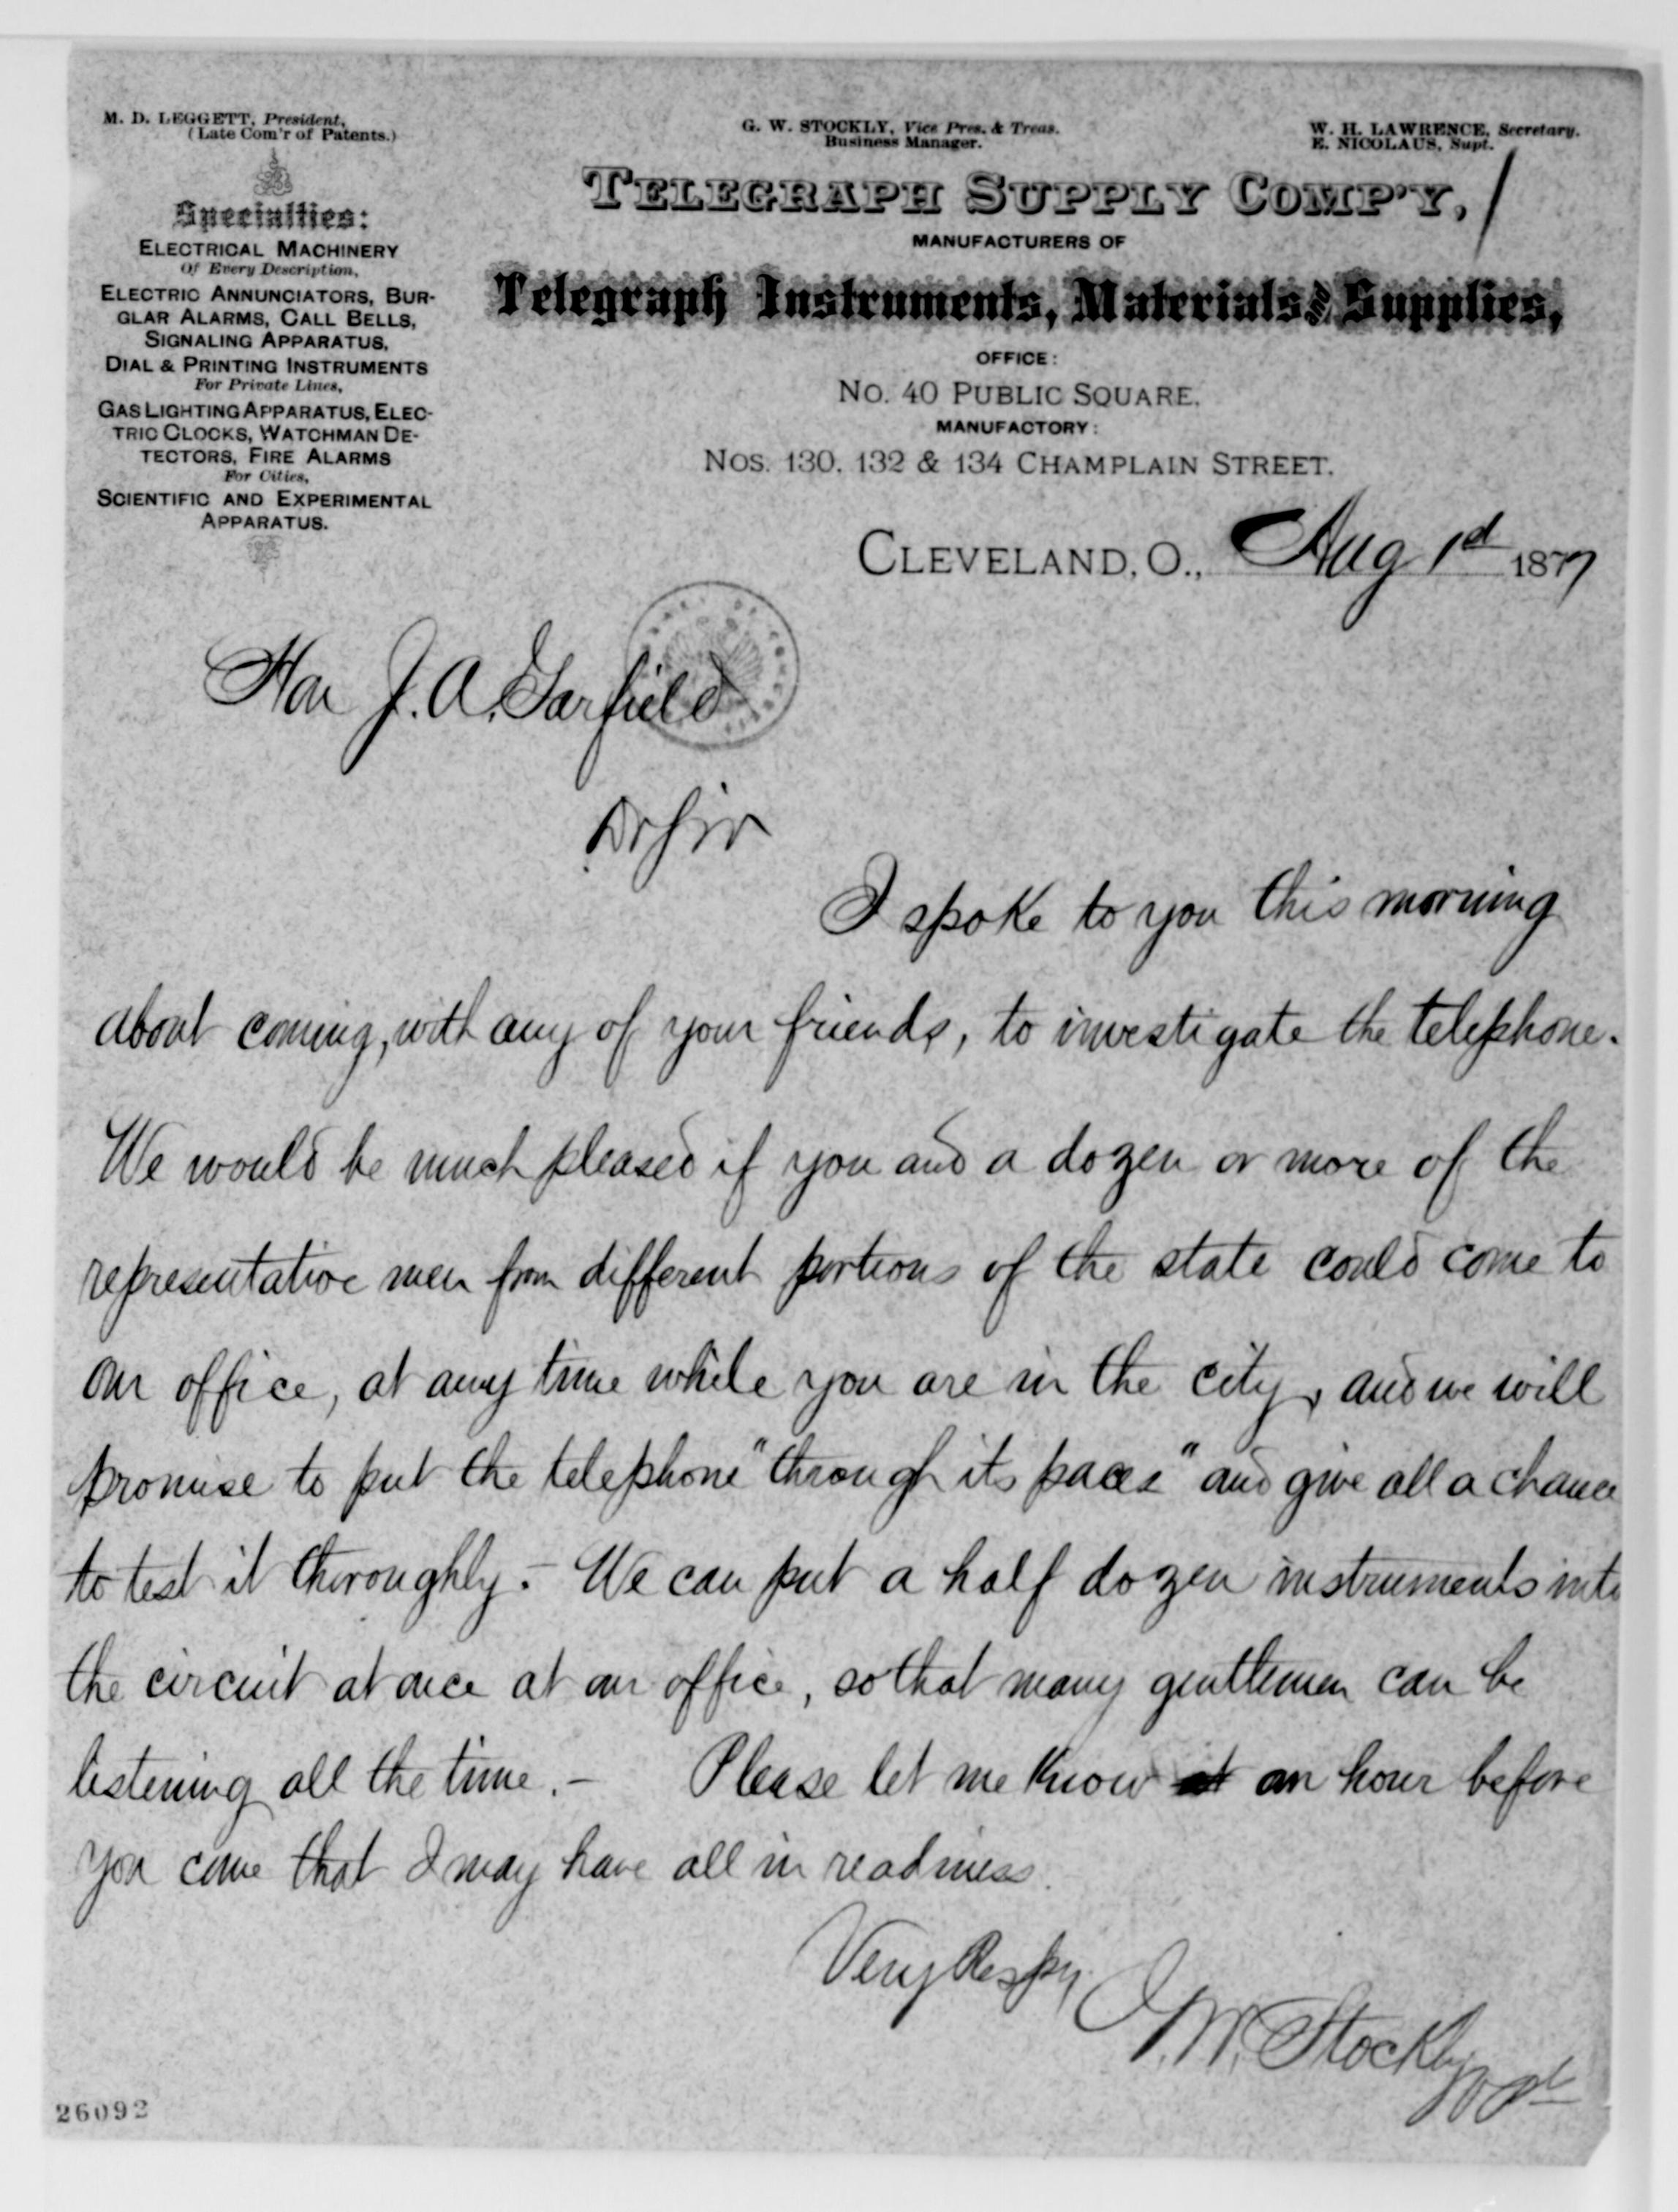 M. D. LEGGETT, President,
(Late Com'r of Patents.)
G. W. STOCKLY, Vice Pres. & Treas.
Business Manager.
W. H. LAWRENCE, Secretary.
E. NICOLAUS, Supt.
Specialties:
ELECTRICAL MACHINERY
Of Every Description,
ELECTRIC ANNUNCIATORS, BUR-
GLAR ALARMS, CALL BELLS,
SIGNALING APPARATUS,
DIAL & PRINTING INSTRUMENTS
For Private Lines,
GAS LIGHTING APPARATUS, ELEC-
TRIC CLOCKS, WATCHMAN DE-
TECTORS, FIRE ALARMS
For Cities,
SCIENTIFIC AND EXPERIMENTAL
APPARATUS.
TELEGRAPH SUPPLY COMP'Y,
MANUFACTURERS OF
Telegraph Instruments, Materials and Supplies,
OFFICE:
NO. 40 PUBLIC SQUARE.
MANUFACTORY:
NOS. 130, 132 & 134 CHAMPLAIN STREET.
CLEVELAND, O., Aug 1d 1877
Hon J. A. Garfield
Dr Sir
I spoke to you this morning
about coming, with any of your friends, to investigate the telephone.
We would be much pleased if you and a dozen or more of the
representative men from different portions of the state could come to
our office, at any time while you are in the city, and we will
promise to put the telephone "through its paces" and give all a chance
to test it thoroughly. - We can put a half dozen instruments into
the circuit at once at our office, so that many gentlemen can be
listening all the time. - Please let me know at an hour before
you come that I may have all in readiness.
Very Respy
G. W. Stockly
26092